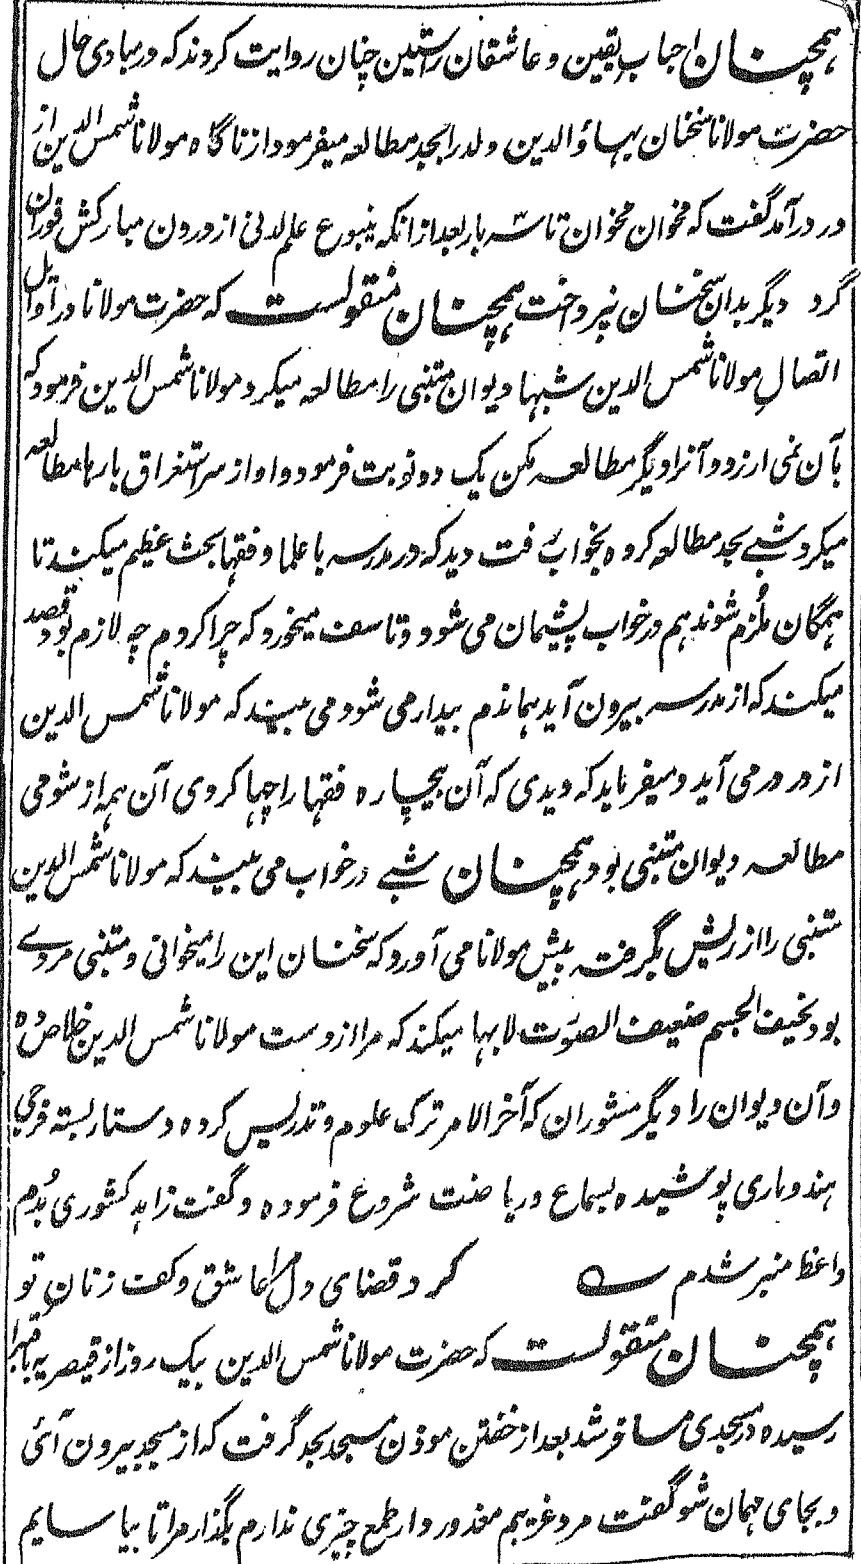 همچنان احباب یقین و عاشقان راستین چنان روایت کردند که در مبادی حال
حضرت مولانا سخنان بهاؤالدین ولد را بجد مطالعه میفرمود از ناگاه مولانا شمس الدین از
در درآمد گفت که مخوان مخوان تا سه بار بعد از آنکه ینبوع علم لدنی از درون مبارکش فوران
کرد دیگر بدان سخنان نپرداخت همچنان منقولست که حضرت مولانا در اوایل
اتصال مولانا شمس الدین شبها دیوان متنبی را مطالعه میکرد مولانا شمس الدین فرمود که
بآن نمی ارزد و آنرا دیگر مطالعه مکن یک دو نوبت فرمود و او از سر استغراق بارها مطالعه
میکرد شبے بجد مطالعه کرده بخواب رفت دید که در مدرسه با علما و فقها بحث عظیم میکند تا
همگان ملزم شوند هم در خواب پشیمان می شود و تاسف میخورد که چرا کردم چه لازم بود قصد
میکند که از مدرسه بیرون آید هماندم بیدار می شود می بیند که مولانا شمس الدین
از در در می آید و میفرماید که دیدی که آن بیچاره فقها را چها کردی آن همه از شومی
مطالعه دیوان متنبی بود همچنان شبے در خواب می بیند که مولانا شمس الدین
متنبی را از ریش بگرفته پیش مولانا می آورد که سخنان این را میخوانی و متنبی مردے
بود نحیف الجسم ضعیف الصوت لابها میکند که مرا از دست مولانا شمس الدین خلاص ده
و آن دیوان را دیگر مشوران که آخر الامر ترک علوم و تدریس کرده دستار بسته فرجی
هندوباری پوشیده بسماع و ریاضت شروع فرموده و گفت زاهد کشوری بُدم
واعظ منبر شدم کرد قضای دل مرا عاشق و کف زنان تو
همچنان منقولست که حضرت مولانا شمس الدین بیک روز از قیصریه باقسرا
رسیده در مسجدی مسافر شد بعد از خفتن موذن مسجد بجد گرفت که از مسجد بیرون آئی
و بجای مهمان شو گفت مرد غریبم معذور دار طمع چیزی ندارم بگذار مرا تا بیاسایم